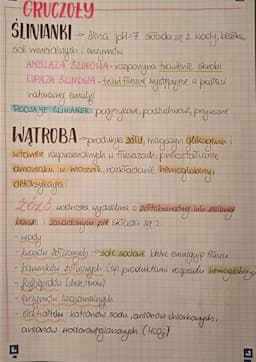 GRUCZOŁY
ŚLINIANKI → ślina pH=7 składa się z wody, białka,
soli mineralnych i enzymów
AMYLAZA ŚLINOWA - rozpoczyna trawienie skrobi
LIPAZA ŚLINOWA - trawi tłuszcze występujące w postaci
naturalnej emulsji
RODZAJE ŚLINIANEK: podjęzykowe, podżuchwowe, przyuszne
WĄTROBA - produkuje żółć, magazyn glikogenu i
witamin rozpuszczalnych w tłuszczach, przekształcanie
amoniaku w mocznik, rozkładanie hemoglobiny,
detoksykacja
ŻÓŁĆ wodnista wydzielina o żółtobrunatnej lub zielonej
barwie i zasadowym pH składa się z:
- wody
- kwasów żółciowych → sole sodowe które emulgują tłuszcz
- barwników żółciowych (są produktami rozpadu hemoglobiny)
- fosfolipidów (cholesterolu)
- enzymów
- elektrolitów: kationów sodu, anionów chlorkowych,
anionów wodorowęglanowych (HCO₃⁻)